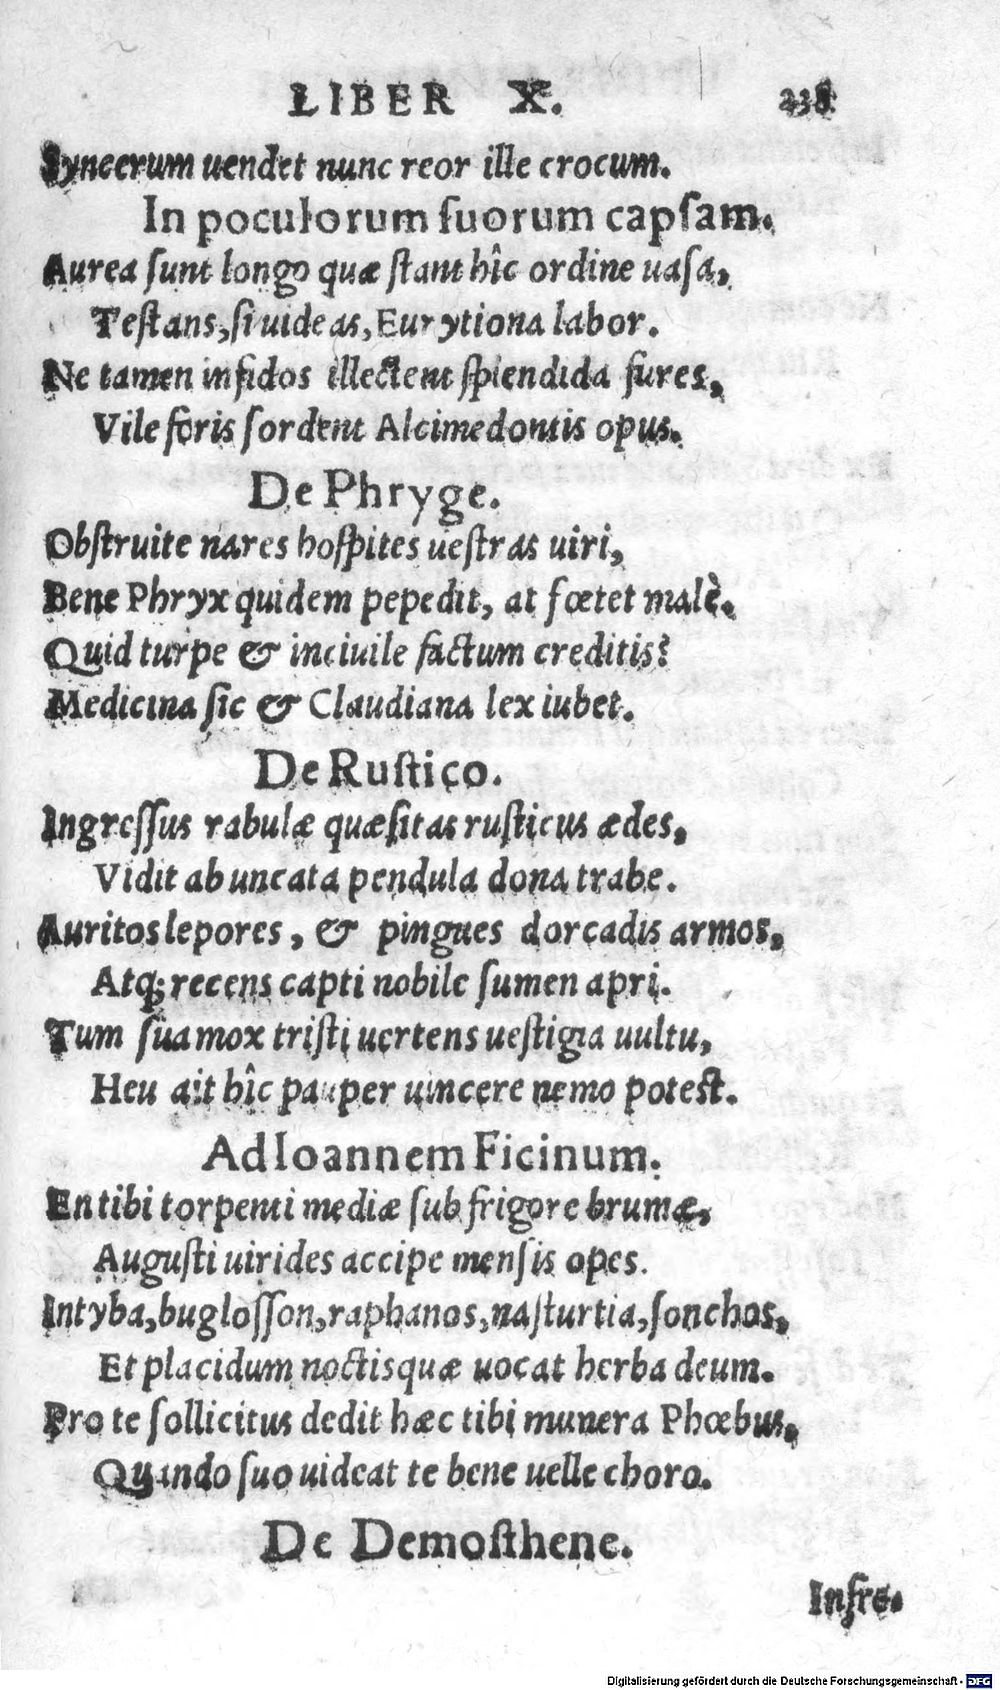 LIBER X. 238
Syncerum uendet nunc reor ille crocum.
In poculorum ſuorum capſam.
Aurea ſunt longo quæ ſtant hîc ordine uaſa,
Teſtans, ſi uideas, Eurytiona labor.
Ne tamen infidos illectent ſplendida fures,
Vile foris ſordent Alcimedontis opus.
De Phryge.
Obſtruite nares hoſpites ueſtras uiri,
Bene Phryx quidem pepedit, at fœtet malè.
Quid turpe & inciuile factum creditis?
Medicina ſic & Claudiana lex iubet.
De Ruſtico.
Ingreſſus rabulæ quæſitas ruſticus ædes,
Vidit ab uncata pendula dona trabe.
Auritos lepores, & pingues dorcadis armos,
Atq; recens capti nobile ſumen apri.
Tum ſua mox triſti uertens ueſtigia uultu,
Heu ait hîc pauper uincere nemo poteſt.
Ad Ioannem Ficinum.
En tibi torpenti mediæ ſub frigore brumæ,
Auguſti uirides accipe menſis opes.
Intyba, bugloſſon, raphanos, naſturtia, ſonchos,
Et placidum noctis quæ uocat herba deum.
Pro te ſollicitus dedit hæc tibi munera Phœbus,
Quando ſuo uideat te bene uelle choro.
De Demoſthene.
Infre.
Digitalisierung gefördert durch die Deutsche Forschungsgemeinschaft - DFG